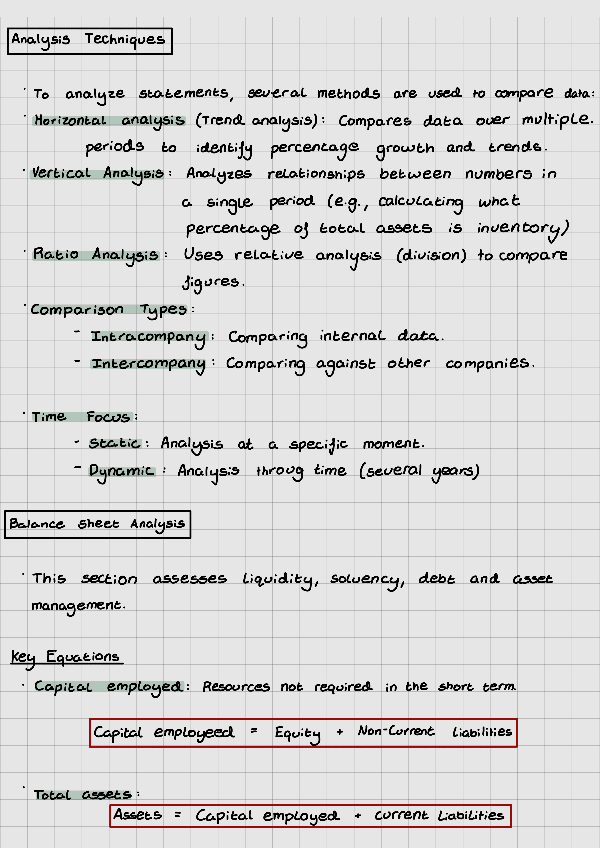 Analysis Techniques
· To analyze statements, several methods are used to compare data:
· Horizontal analysis (Trend analysis): Compares data over multiple.
periods to identify percentage growth and trends.
· Vertical Analysis: Analyzes relationships between numbers in
a single period (e.g., calculating what
percentage of total assets is inventory)
· Ratio Analysis: Uses relative analysis (division) to compare
figures.
· Comparison Types:
- Intracompany: Comparing internal data.
- Intercompany: Comparing against other companies.
· Time Focus:
- Static: Analysis at a specific moment.
- Dynamic: Analysis throug time (several years)
Balance sheet Analysis
· This section assesses liquidity, solvency, debt and asset
management.
Key Equations
· Capital employed: Resources not required in the short term
Capital employeed = Equity + Non-Current liabilities
· Total assets:
Assets = Capital employed + current Liabilities